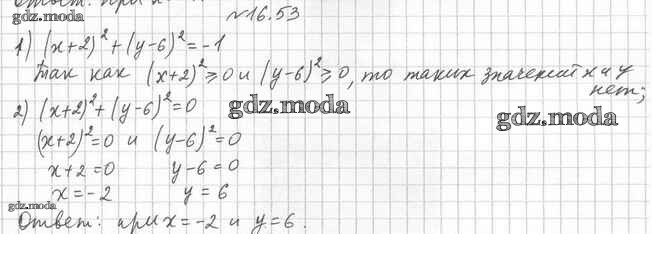 Ответ: при
gdz.moda
№16.53
1) (x+2)²+(y-6)²=-1
Так как (x+2)²⩾0 и (y-6)²⩾0, то таких значений x и y
нет;
2) (x+2)²+(y-6)²=0
gdz.moda
gdz.moda
(x+2)²=0 и (y-6)²=0
x+2=0 y-6=0
x=-2 y=6
gdz.moda
Ответ: при x=-2 и y=6.